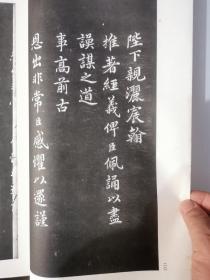 陛下親灑宸翰
推著經義俾臣佩誦以盡
謨謀之道
事高前古
恩出非常臣感躍以還謹